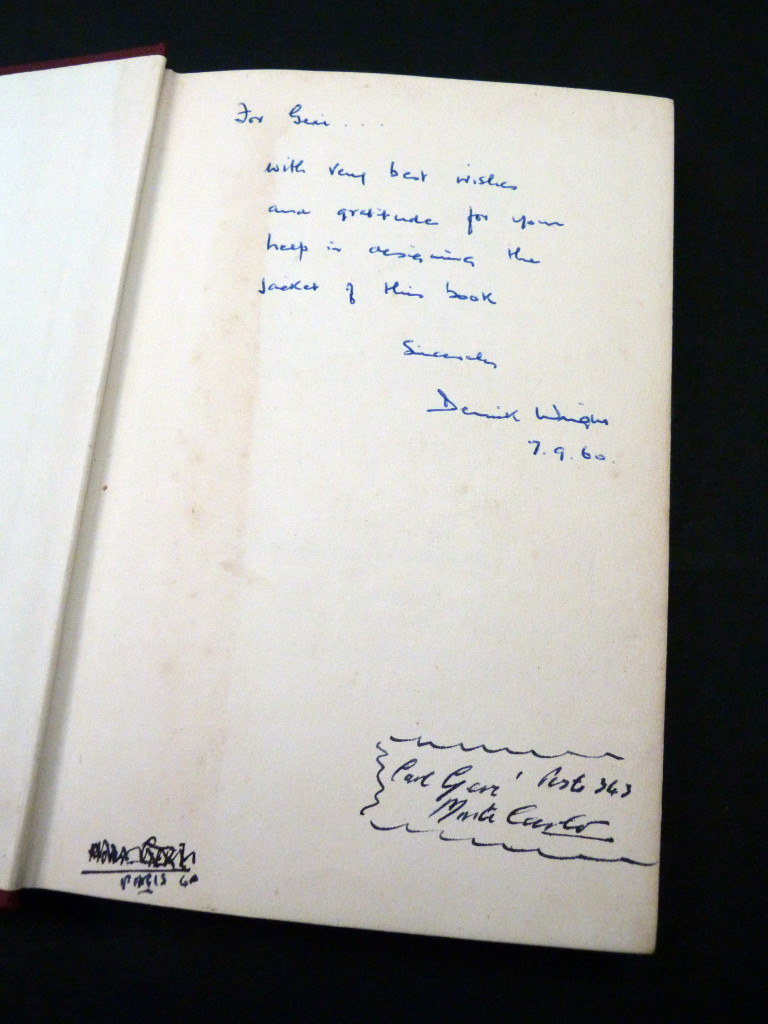 For Geri...
with very best wishes
and gratitude for your
help in designing the
jacket of this book
Sincerely
Derrick Wright
7.9.60.
Carl Geri Poste 343
Monte Carlo
PARIS 60